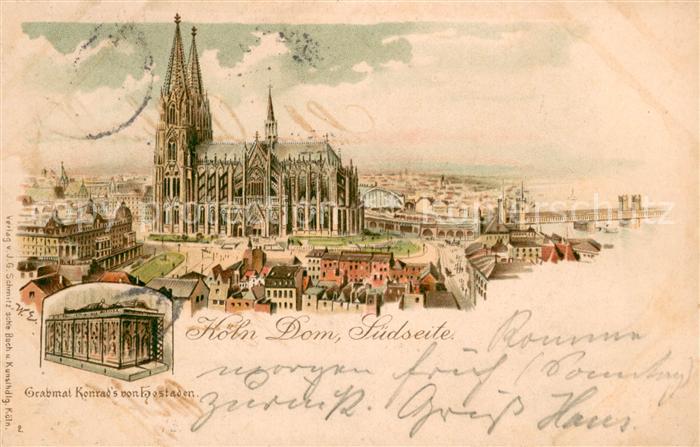 Köln Dom, Südseite.
Grabmal Konrad's von Hostaden.
Verlag v. J. G. Schmitz'sche Buch u. Kunsthdlg. Köln.
2.
Komme
morgen früh (Sonntag)
zurück. Gruß Hans.